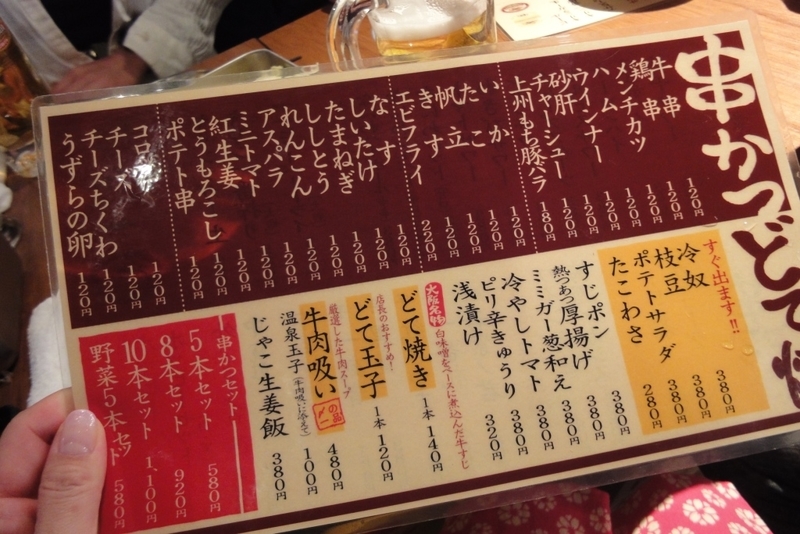 串かつどて焼
牛串 120円
鶏串 120円
メンチカツ 120円
ハム 120円
ウインナー 120円
砂肝 120円
チャーシュー 120円
上州もち豚バラ 180円
いか 120円
たこ 120円
帆立 120円
きす 120円
エビフライ 220円
なす 120円
しいたけ 120円
たまねぎ 120円
ししとう 120円
れんこん 120円
アスパラ 120円
ミニトマト 120円
紅生姜 120円
とうもろこし 120円
ポテト串 120円
コロ 120円
チーズ 120円
チーズちくわ 120円
うずらの卵 120円
すぐ出ます!!
冷奴 380円
枝豆 380円
ポテトサラダ 380円
たこわさ 280円
すじポン 380円
熱つあつ厚揚げ 380円
ミミガー葱和え 380円
冷やしトマト 380円
ピリ辛きゅうり 380円
浅漬け 320円
大阪名物 白味噌をベースに煮込んだ牛すじ
どて焼き 1本 140円
店長のおすすめ!
どて玉子 1本 120円
厳選した牛肉スープ
牛肉吸い 〆の一品 480円
温泉玉子(牛肉吸いに添えて) 100円
じゃこ生姜飯 380円
串かつセット
5本セット 580円
8本セット 920円
10本セット 1,100円
野菜5本セット 580円